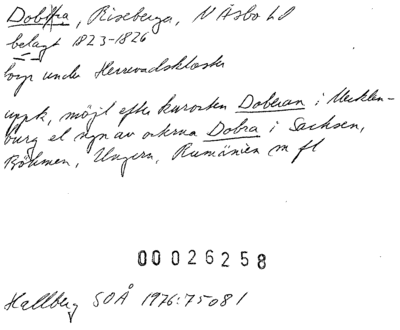 Dobra, Riseberga, N Åsbo hd
belagt 1823-1826
torp under Herrevadskloster
uppk, möjl efter kurorten Doberan i Mecklen-
burg el ngn av orterna Dobra i Sachsen,
Böhmen, Ungern, Rumänien m fl
00026258
Hallberg SOÅ 1976:75 081